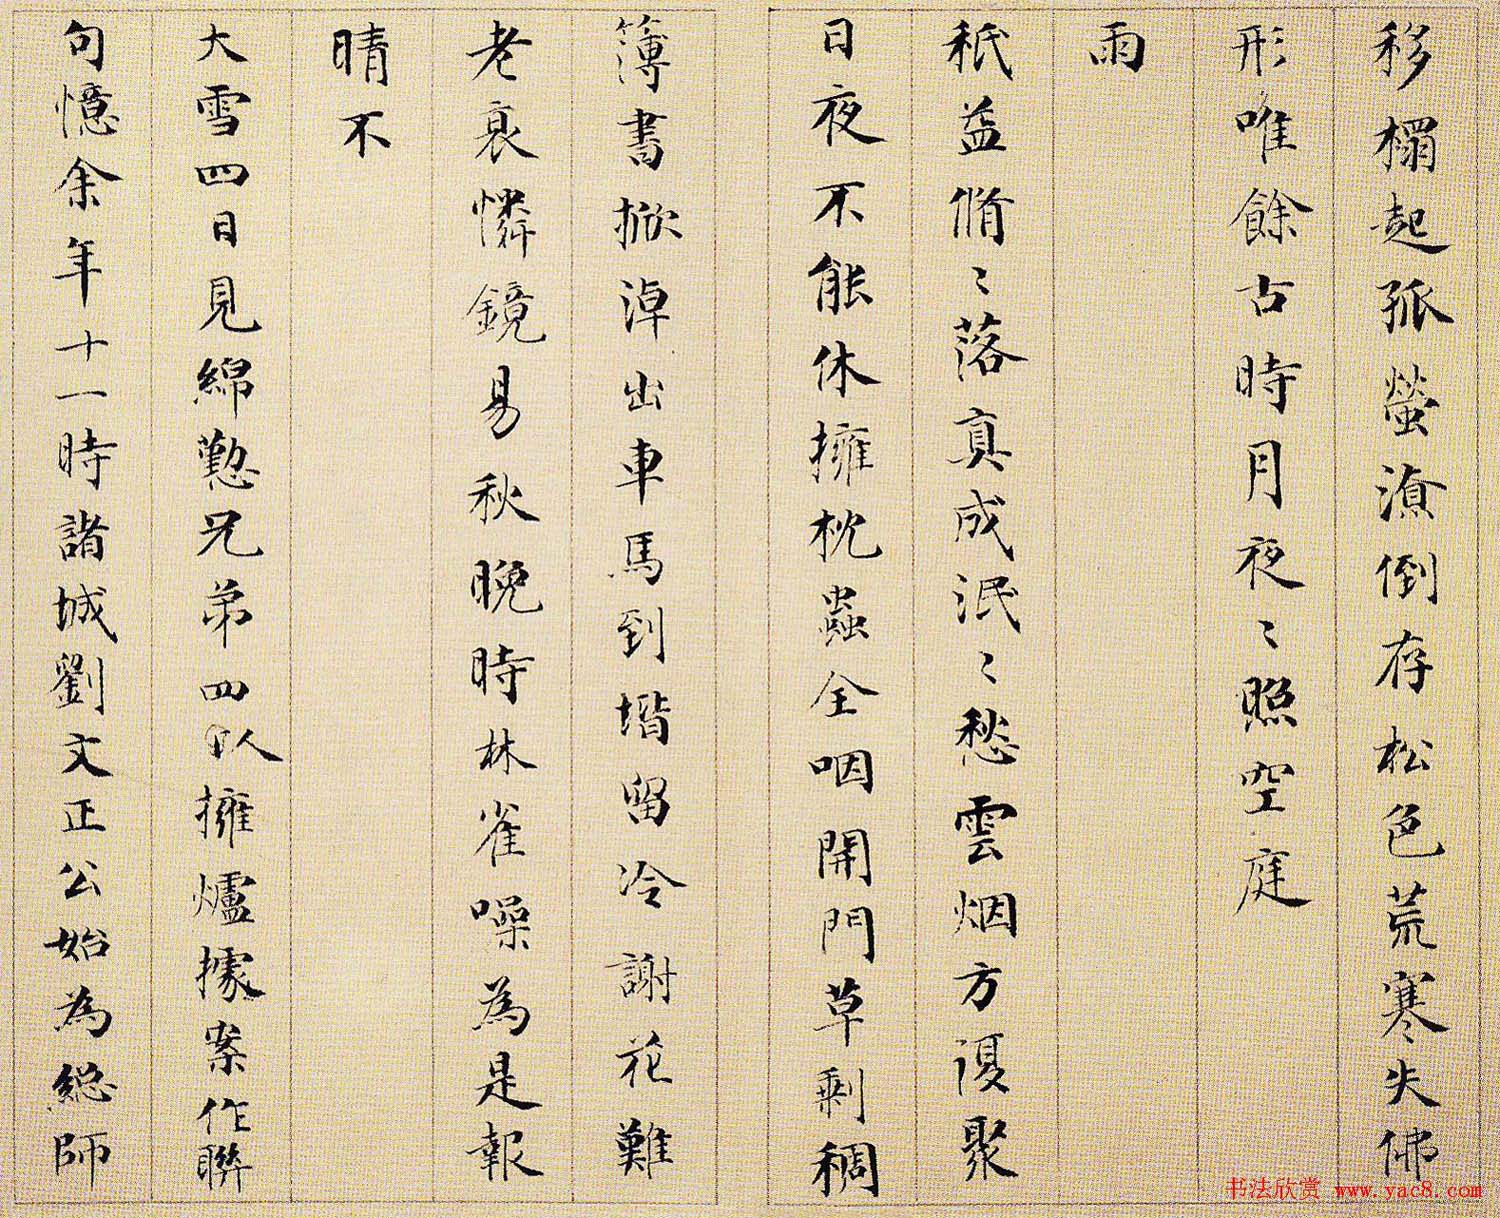 移榻起孤螢滾倒存松色荒寒失佛
形唯餘古時月夜〻照空庭
雨
秖益翛〻落真成泯〻愁雲烟方復聚
日夜不能休擁枕蟲全咽開門草剩稠
簿書掀淖出車馬到堦留冷謝花難
老衰憐鏡易秋晚時林雀噪為是報
晴不
大雪四日見綿懃兄弟四以擁爐據案作聯
句憶余年十一時諸城劉文正公始為總師
书法欣赏 www.yac8.com